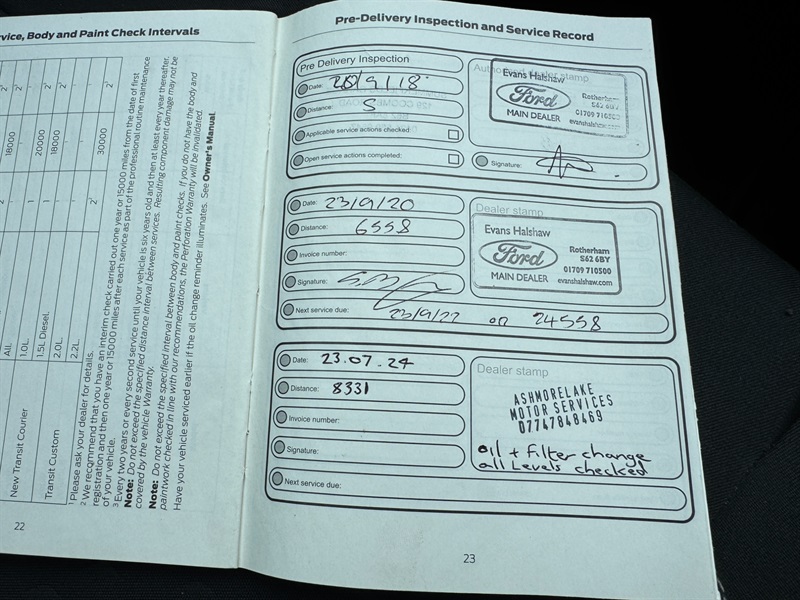 rvice, Body and Paint Check Intervals
All.
18000
2
2¹
1.0L
-
-
2¹
1.5L Diesel.
1
20000
2¹
2.0L
1
18000
2¹
2.2L
-
-
-
2¹
30000
2³
New Transit Courier
Transit Custom
¹ Please ask your dealer for details.
² We recommend that you have an interim check carried out one year or 15000 miles from the date of first
registration and then one year or 15000 miles after each service as part of the professional routine maintenance
of your vehicle.
³ Every two years or every second service until your vehicle is six years old and then at least every year thereafter.
Note: Do not exceed the specified distance interval between services. Resulting component damage may not be
covered by the vehicle Warranty.
Note: Do not exceed the specified interval between body and paint checks. If you do not have the body and
paintwork checked in line with our recommendations, the Perforation Warranty will be invalidated.
Have your vehicle serviced earlier if the oil change reminder illuminates. See Owner's Manual.
22
Pre-Delivery Inspection and Service Record
Pre Delivery Inspection
Date: 28/9/18
Distance: 5
Applicable service actions checked:
Open service actions completed:
Authorized dealer stamp
Evans Halshaw
Ford
MAIN DEALER
Rotherham
S62 6BY
01709 710500
evanshalshaw.com
Signature:
Date: 23/9/20
Distance: 6558
Invoice number:
Signature:
Next service due: 23/9/22 or 24558
Dealer stamp
Evans Halshaw
Ford
MAIN DEALER
Rotherham
S62 6BY
01709 710500
evanshalshaw.com
Date: 23.07.24
Distance: 8331
Invoice number:
Signature:
Next service due:
Dealer stamp
ASHMORELAKE
MOTOR SERVICES
07747848469
oil + filter change
all Levels checked
23